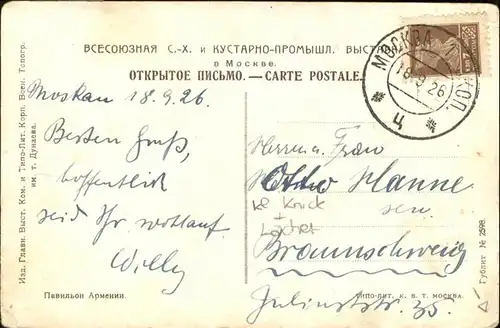 ВСЕСОЮЗНАЯ С.-Х. и КУСТАРНО-ПРОМЫШЛ. ВЫСТ
в Москве.
ОТКРЫТОЕ ПИСЬМО.—CARTE POSTALE.
МОСКВА
18.9.26
Ц
Moskau 18.9.26.
Besten Gruß,
hoffentlich
seid Ihr wohlauf.
Willy
Herrn u. Frau
Otto Hanne
sen.
Braunschweig
Juliusstr. 35.
Павильон Армении.
Типо-лит. К. В. Т. МОСКВА.
Изд. Главн. Выст. Ком. и Типо-Лит. Корп. Воен. Топогр.
им. т. Дунаева.
Гублит № 2598.